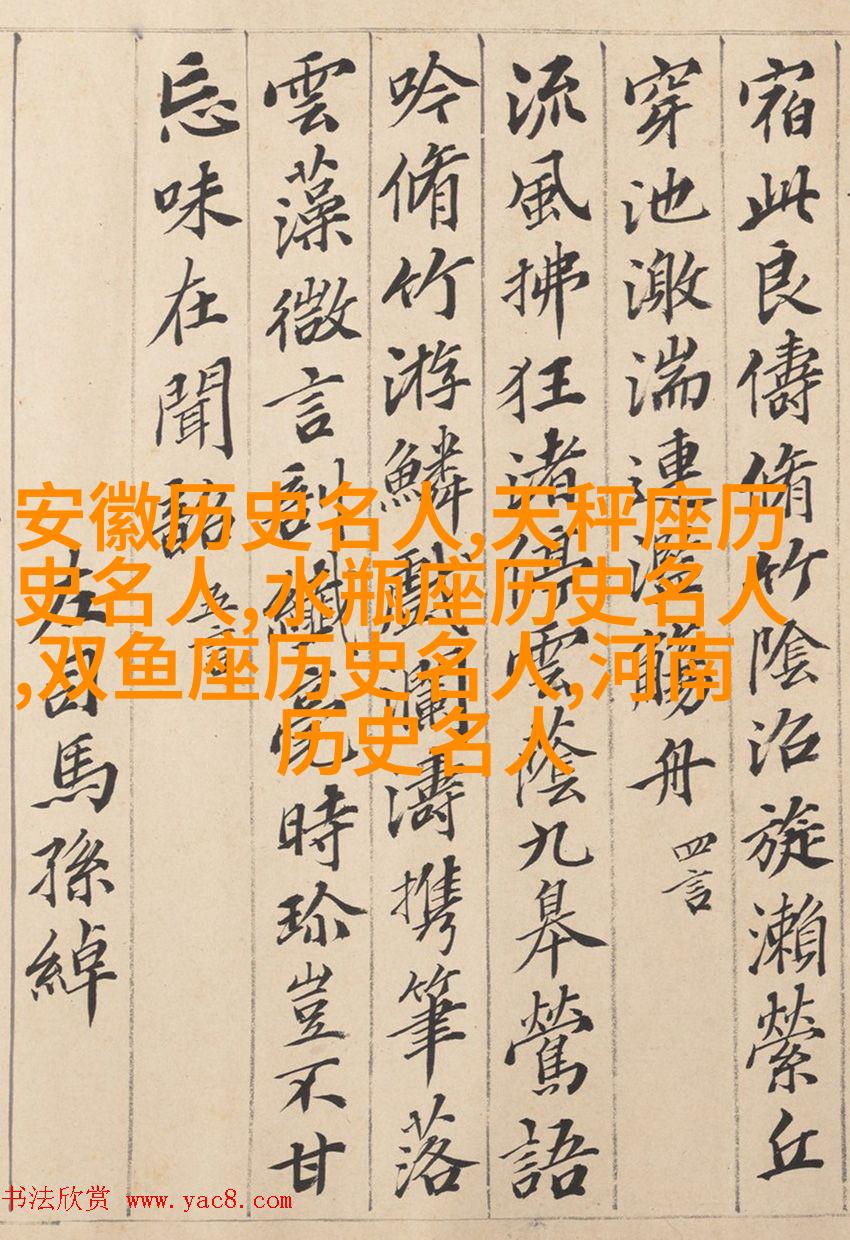 宿此良儔脩竹陰沼旋瀨縈丘
穿池激湍連濫觴舟
四言
流風拂狂渚停雲蔭九皋鶯語
吟脩竹游鱗戲瀾濤携筆落
雲藻微言剖纖毫時珎豈不甘
忘味在聞韶
五言
左司馬孫綽
安徽历史名人,天秤座历
史名人,水瓶座历史名人
,双鱼座历史名人,河南
历史名人
书法欣赏 www.yac8.com